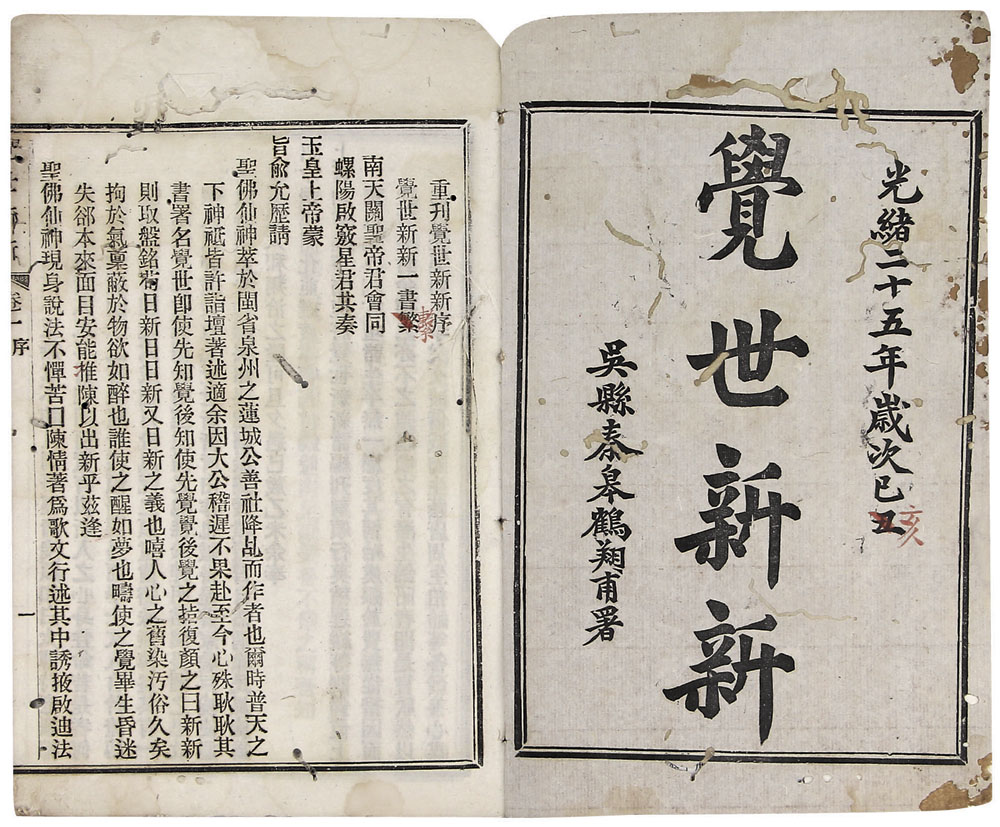 光緒二十五年歲次己丑亥
覺世新新
吳縣秦皋鶴翔甫署
重刊覺世新新序
覺世新新一書繁繫
南天關聖帝君會同
螺陽啟竅星君共奏
玉皇上帝蒙
旨俞允歷請
聖佛仙神萃於閩省泉州之蓮城公善社降乩而作者也爾時普天之
下神祗皆許詣壇著述適余因大公稽遲不果赴至今心殊耿耿其
書署名覺世卽使先知覺後知使先覺覺後覺之旨復顏之曰新新
則取盤銘苟日新日日新又日新之義也嘻人心之舊染汚俗久矣
拘於氣稟蔽於物欲如醉也誰使之醒如夢也疇使之覺畢生昏迷
失郤本來面目安能推陳以出新乎茲逢
聖佛仙神現身說法不憚苦口陳情著爲歌文行述其中誘掖啟迪法
卷一序
一